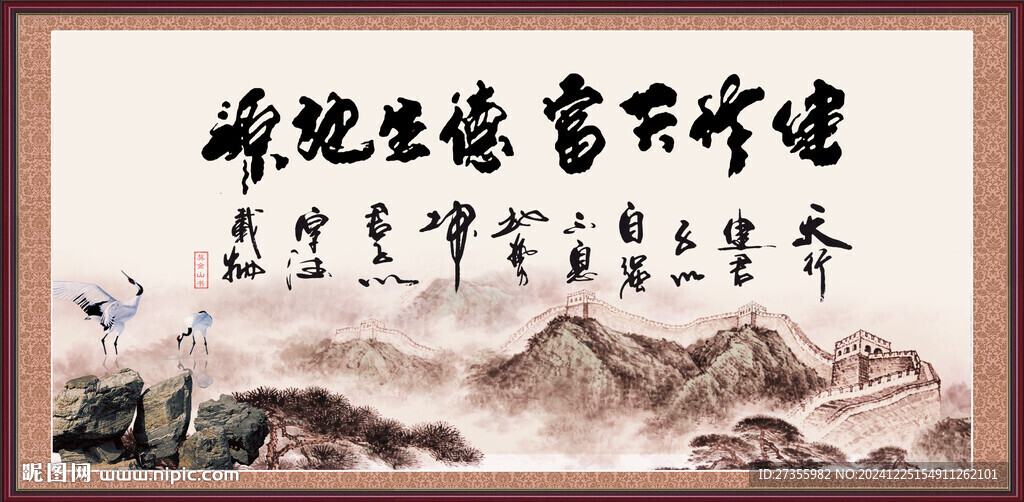 健行天富 德生地源
天行健君子以自强不息地势坤君子以厚德载物
昵图网 www.nipic.com
ID:27355982 NO:20241225154911262101